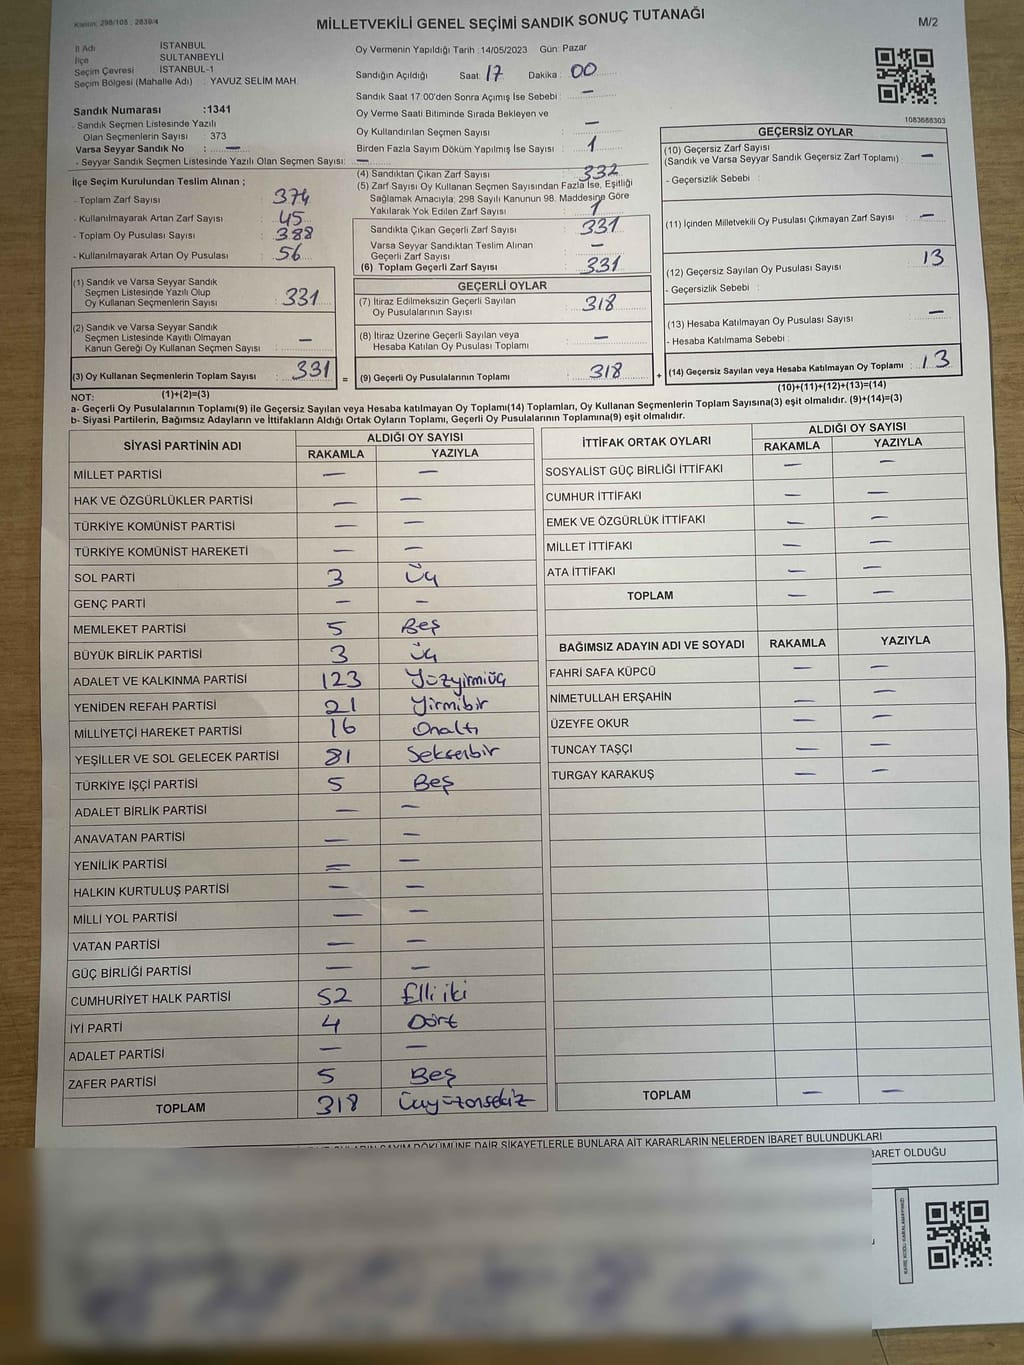 Kanun: 298/105 ; 2839/4
MİLLETVEKİLİ GENEL SEÇİMİ SANDIK SONUÇ TUTANAĞI
M/2
İl Adı İSTANBUL
İlçe SULTANBEYLİ
Seçim Çevresi İSTANBUL-1
Seçim Bölgesi (Mahalle Adı) : YAVUZ SELİM MAH.
Sandık Numarası :1341
- Sandık Seçmen Listesinde Yazılı
Olan Seçmenlerin Sayısı : 373
Varsa Seyyar Sandık No : —
- Seyyar Sandık Seçmen Listesinde Yazılı Olan Seçmen Sayısı: —
İlçe Seçim Kurulundan Teslim Alınan ;
- Toplam Zarf Sayısı : 374
- Kullanılmayarak Artan Zarf Sayısı : 45
- Toplam Oy Pusulası Sayısı : 388
- Kullanılmayarak Artan Oy Pusulası : 56
(1) Sandık ve Varsa Seyyar Sandık
Seçmen Listesinde Yazılı Olup
Oy Kullanan Seçmenlerin Sayısı : 331
(2) Sandık ve Varsa Seyyar Sandık
Seçmen Listesinde Kayıtlı Olmayan
Kanun Gereği Oy Kullanan Seçmen Sayısı : —
(3) Oy Kullanan Seçmenlerin Toplam Sayısı : 331
Oy Vermenin Yapıldığı Tarih :14/05/2023 Gün: Pazar
Sandığın Açıldığı Saat: 17 Dakika : 00
Sandık Saat 17:00'den Sonra Açımış İse Sebebi : —
Oy Verme Saati Bitiminde Sırada Bekleyen ve
Oy Kullandırılan Seçmen Sayısı : —
Birden Fazla Sayım Döküm Yapılmış İse Sayısı : 1
(4) Sandıktan Çıkan Zarf Sayısı : 332
(5) Zarf Sayısı Oy Kullanan Seçmen Sayısından Fazla İse, Eşitliği
Sağlamak Amacıyla; 298 Sayılı Kanunun 98. Maddesine Göre
Yakılarak Yok Edilen Zarf Sayısı : 1
Sandıkta Çıkan Geçerli Zarf Sayısı : 331
Varsa Seyyar Sandıktan Teslim Alınan
Geçerli Zarf Sayısı : —
(6) Toplam Geçerli Zarf Sayısı : 331
GEÇERLİ OYLAR
(7) İtiraz Edilmeksizin Geçerli Sayılan
Oy Pusulalarının Sayısı : 318
(8) İtiraz Üzerine Geçerli Sayılan veya
Hesaba Katılan Oy Pusulası Toplamı : —
= (9) Geçerli Oy Pusulalarının Toplamı : 318
1083688303
GEÇERSİZ OYLAR
(10) Geçersiz Zarf Sayısı
(Sandık ve Varsa Seyyar Sandık Geçersiz Zarf Toplamı) : —
- Geçersizlik Sebebi :
(11) İçinden Milletvekili Oy Pusulası Çıkmayan Zarf Sayısı : —
(12) Geçersiz Sayılan Oy Pusulası Sayısı : 13
- Geçersizlik Sebebi :
(13) Hesaba Katılmayan Oy Pusulası Sayısı : —
- Hesaba Katılmama Sebebi :
+ (14) Geçersiz Sayılan veya Hesaba Katılmayan Oy Toplamı : 13
NOT: (1)+(2)=(3)
(10)+(11)+(12)+(13)=(14)
a- Geçerli Oy Pusulalarının Toplamı(9) ile Geçersiz Sayılan veya Hesaba katılmayan Oy Toplamı(14) Toplamları, Oy Kullanan Seçmenlerin Toplam Sayısına(3) eşit olmalıdır. (9)+(14)=(3)
b- Siyasi Partilerin, Bağımsız Adayların ve İttifakların Aldığı Ortak Oyların Toplamı, Geçerli Oy Pusulalarının Toplamına(9) eşit olmalıdır.
SİYASİ PARTİNİN ADI
ALDIĞI OY SAYISI
RAKAMLA YAZIYLA
MİLLET PARTİSİ — —
HAK VE ÖZGÜRLÜKLER PARTİSİ — —
TÜRKİYE KOMÜNİST PARTİSİ — —
TÜRKİYE KOMÜNİST HAREKETİ — —
SOL PARTİ 3 Üç
GENÇ PARTİ — —
MEMLEKET PARTİSİ 5 Beş
BÜYÜK BİRLİK PARTİSİ 3 Üç
ADALET VE KALKINMA PARTİSİ 123 Yüzyirmiüç
YENİDEN REFAH PARTİSİ 21 Yirmibir
MİLLİYETÇİ HAREKET PARTİSİ 16 Onaltı
YEŞİLLER VE SOL GELECEK PARTİSİ 81 Seksenbir
TÜRKİYE İŞÇİ PARTİSİ 5 Beş
ADALET BİRLİK PARTİSİ — —
ANAVATAN PARTİSİ — —
YENİLİK PARTİSİ — —
HALKIN KURTULUŞ PARTİSİ — —
MİLLİ YOL PARTİSİ — —
VATAN PARTİSİ — —
GÜÇ BİRLİĞİ PARTİSİ — —
CUMHURİYET HALK PARTİSİ 52 Elli iki
İYİ PARTİ 4 Dört
ADALET PARTİSİ — —
ZAFER PARTİSİ 5 Beş
TOPLAM 318 Üçyüzonsekiz
İTTİFAK ORTAK OYLARI
ALDIĞI OY SAYISI
RAKAMLA YAZIYLA
SOSYALİST GÜÇ BİRLİĞİ İTTİFAKI — —
CUMHUR İTTİFAKI — —
EMEK VE ÖZGÜRLÜK İTTİFAKI — —
MİLLET İTTİFAKI — —
ATA İTTİFAKI — —
TOPLAM — —
BAĞIMSIZ ADAYIN ADI VE SOYADI RAKAMLA YAZIYLA
FAHRİ SAFA KÜPCÜ — —
NİMETULLAH ERŞAHİN — —
ÜZEYFE OKUR — —
TUNCAY TAŞÇI — —
TURGAY KARAKUŞ — —
TOPLAM — —
SAYIM DÖKÜMÜNE DAİR ŞİKAYETLERLE BUNLARA AİT KARARLARIN NELERDEN İBARET BULUNDUKLARI
İBARET OLDUĞU
KARE KODU KARALAMAYINIZ!